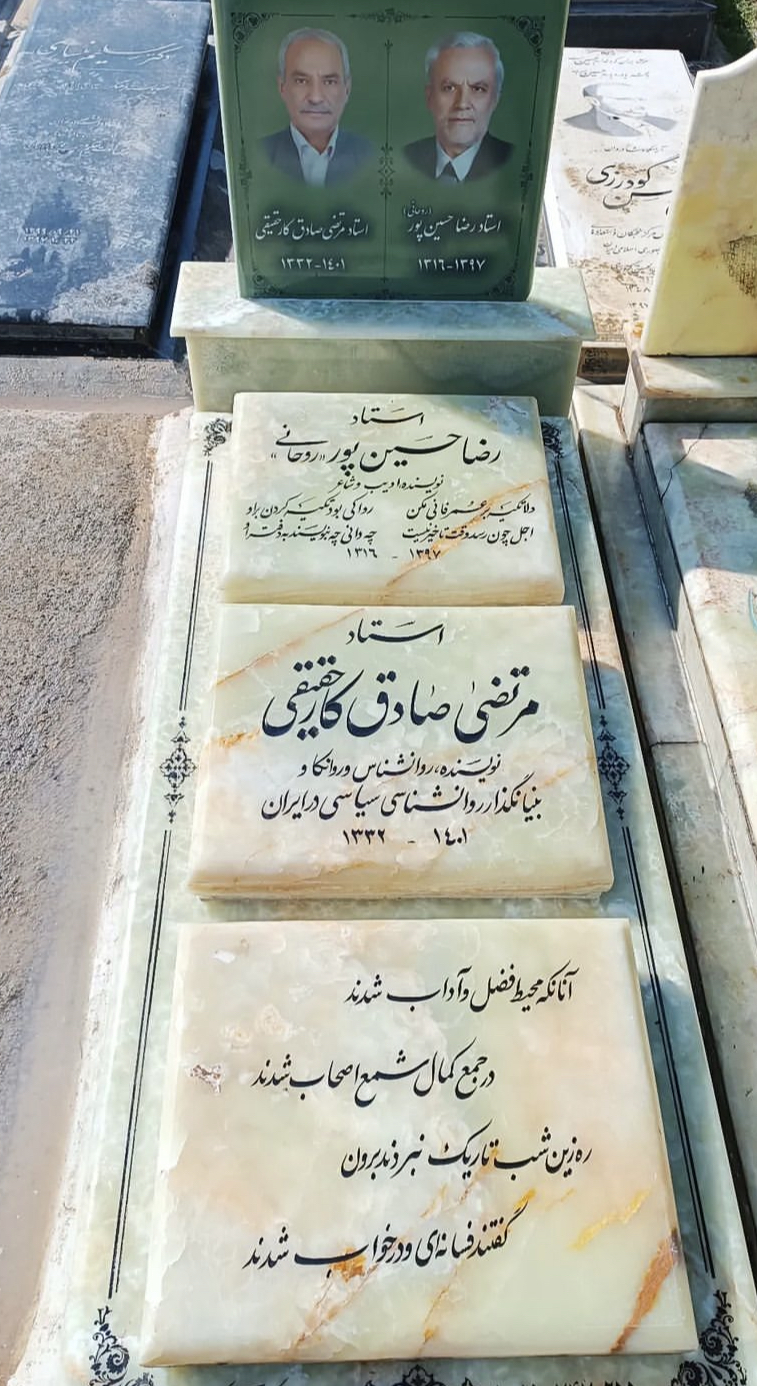 استاد رضا حسین پور
(روحانی)
۱۳۱۶-۱۳۹۷
استاد مرتضی صادق کارحقیقی
۱۳۳۲-۱۴۰۱
استاد
رضا حسین پور «روحانی»
نویسنده ادیب و شاعر
دلا تکیه بر عمر فانی مکن روا کی بود تکیه کردن براو
اجل چون رسد وقت تاخیر نیست چه دانی چه نویسند به دفتر او
۱۳۱۶ - ۱۳۹۷
استاد
مرتضی صادق کارحقیقی
نویسنده، روانشناس و روانکاو
بنیانگذار روانشناسی سیاسی در ایران
۱۳۳۲ - ۱۴۰۱
آنانکه محیط فضل و آداب شدند
در جمع کمال شمع اصحاب شدند
ره زین شب تاریک نبردند برون
گفتند فسانه‌ای و در خواب شدند
گودرزی